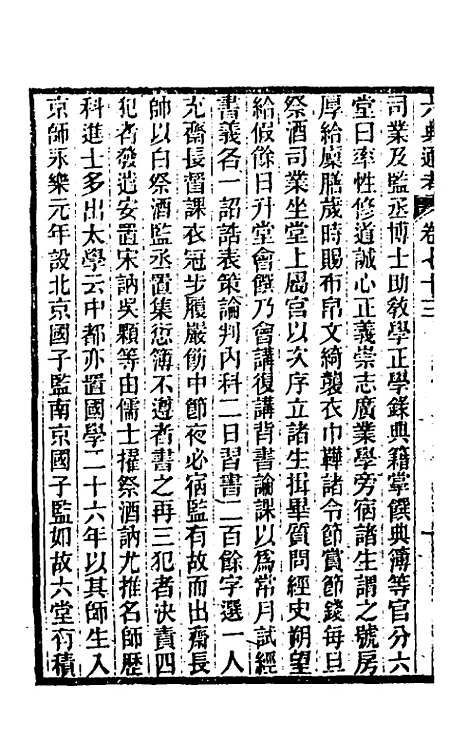 六典通考 卷七十三
司業及監丞博士助敎學正學錄典籍掌饌典簿等官分六
堂曰率性修道誠心正義崇志廣業學旁宿諸生謂之號房
厚給廩膳歲時賜布帛文綺襲衣巾鞾諸令節賞節錢每旦
祭酒司業坐堂上屬官以次序立諸生揖畢質問經史朔望
給假餘日升堂會饌乃會講復講背書論課以爲常月試經
書義各一詔誥表策論判內科二日習書二百餘字選一人
充齋長督課衣冠步履嚴飭中節夜必宿監有故而出齋長
帥以白祭酒監丞置集愆簿不遵者書之再三犯者決責四
犯者發遣安置宋訥吳顆等由儒士擢祭酒訥尤推名師歷
科進士多出太學云中都亦置國學二十六年以其師生入
京師永樂元年設北京國子監南京國子監如故六堂有積